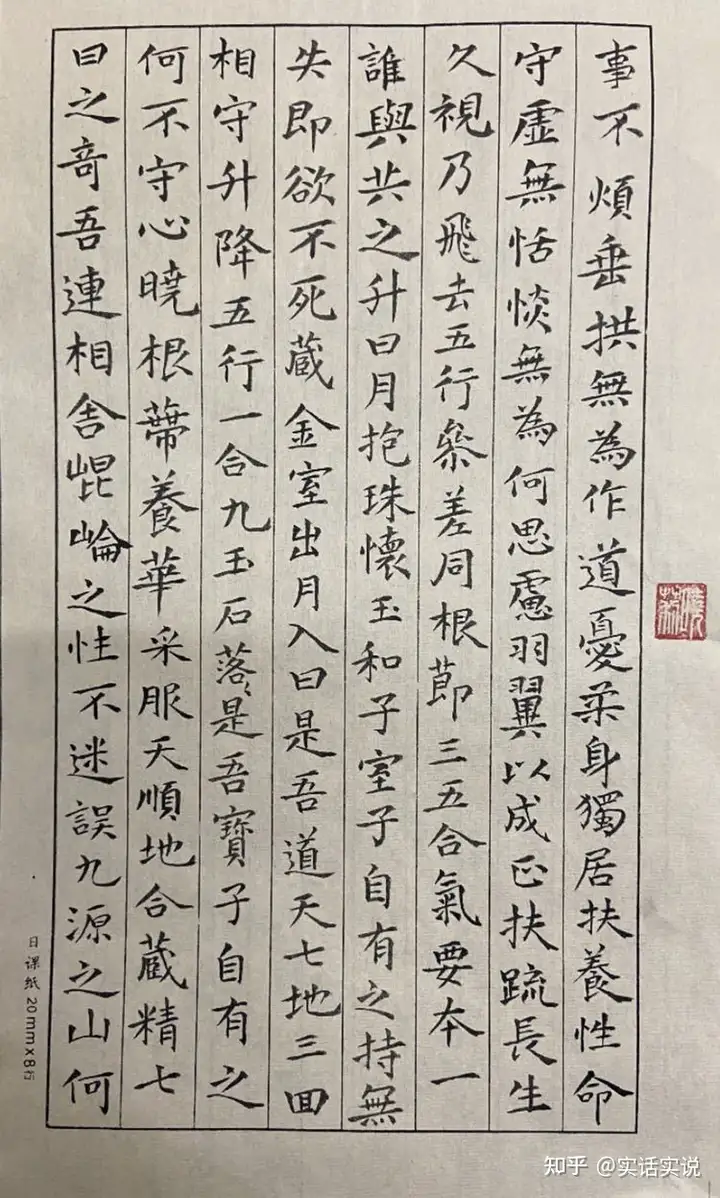 事不煩垂拱無為作道憂柔身獨居扶養性命
守虛無恬惔無為何思慮羽翼以成正扶疏長生
久視乃飛去五行參差同根節三五合氣要本一
誰與共之升日月抱珠懷玉和子室子自有之持無
失即欲不死藏金室出月入日是吾道天七地三回
相守升降五行一合九玉石落〻是吾寶子自有之
何不守心曉根蔕養華采服天順地合藏精七
日之奇吾連相舍崐崘之性不迷誤九源之山何
日课纸 20mm×8行
知乎 @实话实说